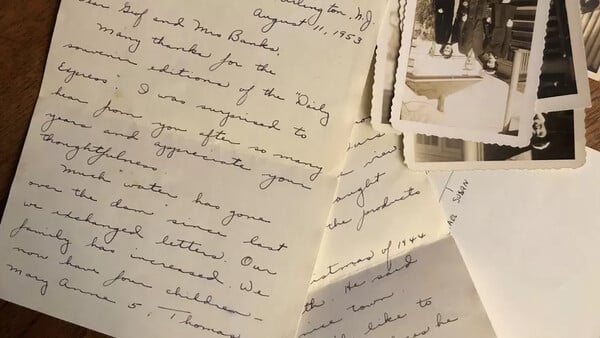 arlington, N.J.
August 11, 1953
ear Guf and Mrs Banks,
Many thanks for the
souvenir editions of the "Daily
Express". I was surprised to
hear from you after so many
years and appreciate your
thoughtfulness.
Much "water has gone
over the dam" since last
we exchanged letters. Our
family has increased. We
now have four children -
Mary Anne 5, Thomas
view
ought
the products
istmas of 1944
th. He said
town.
like to
he
Susan